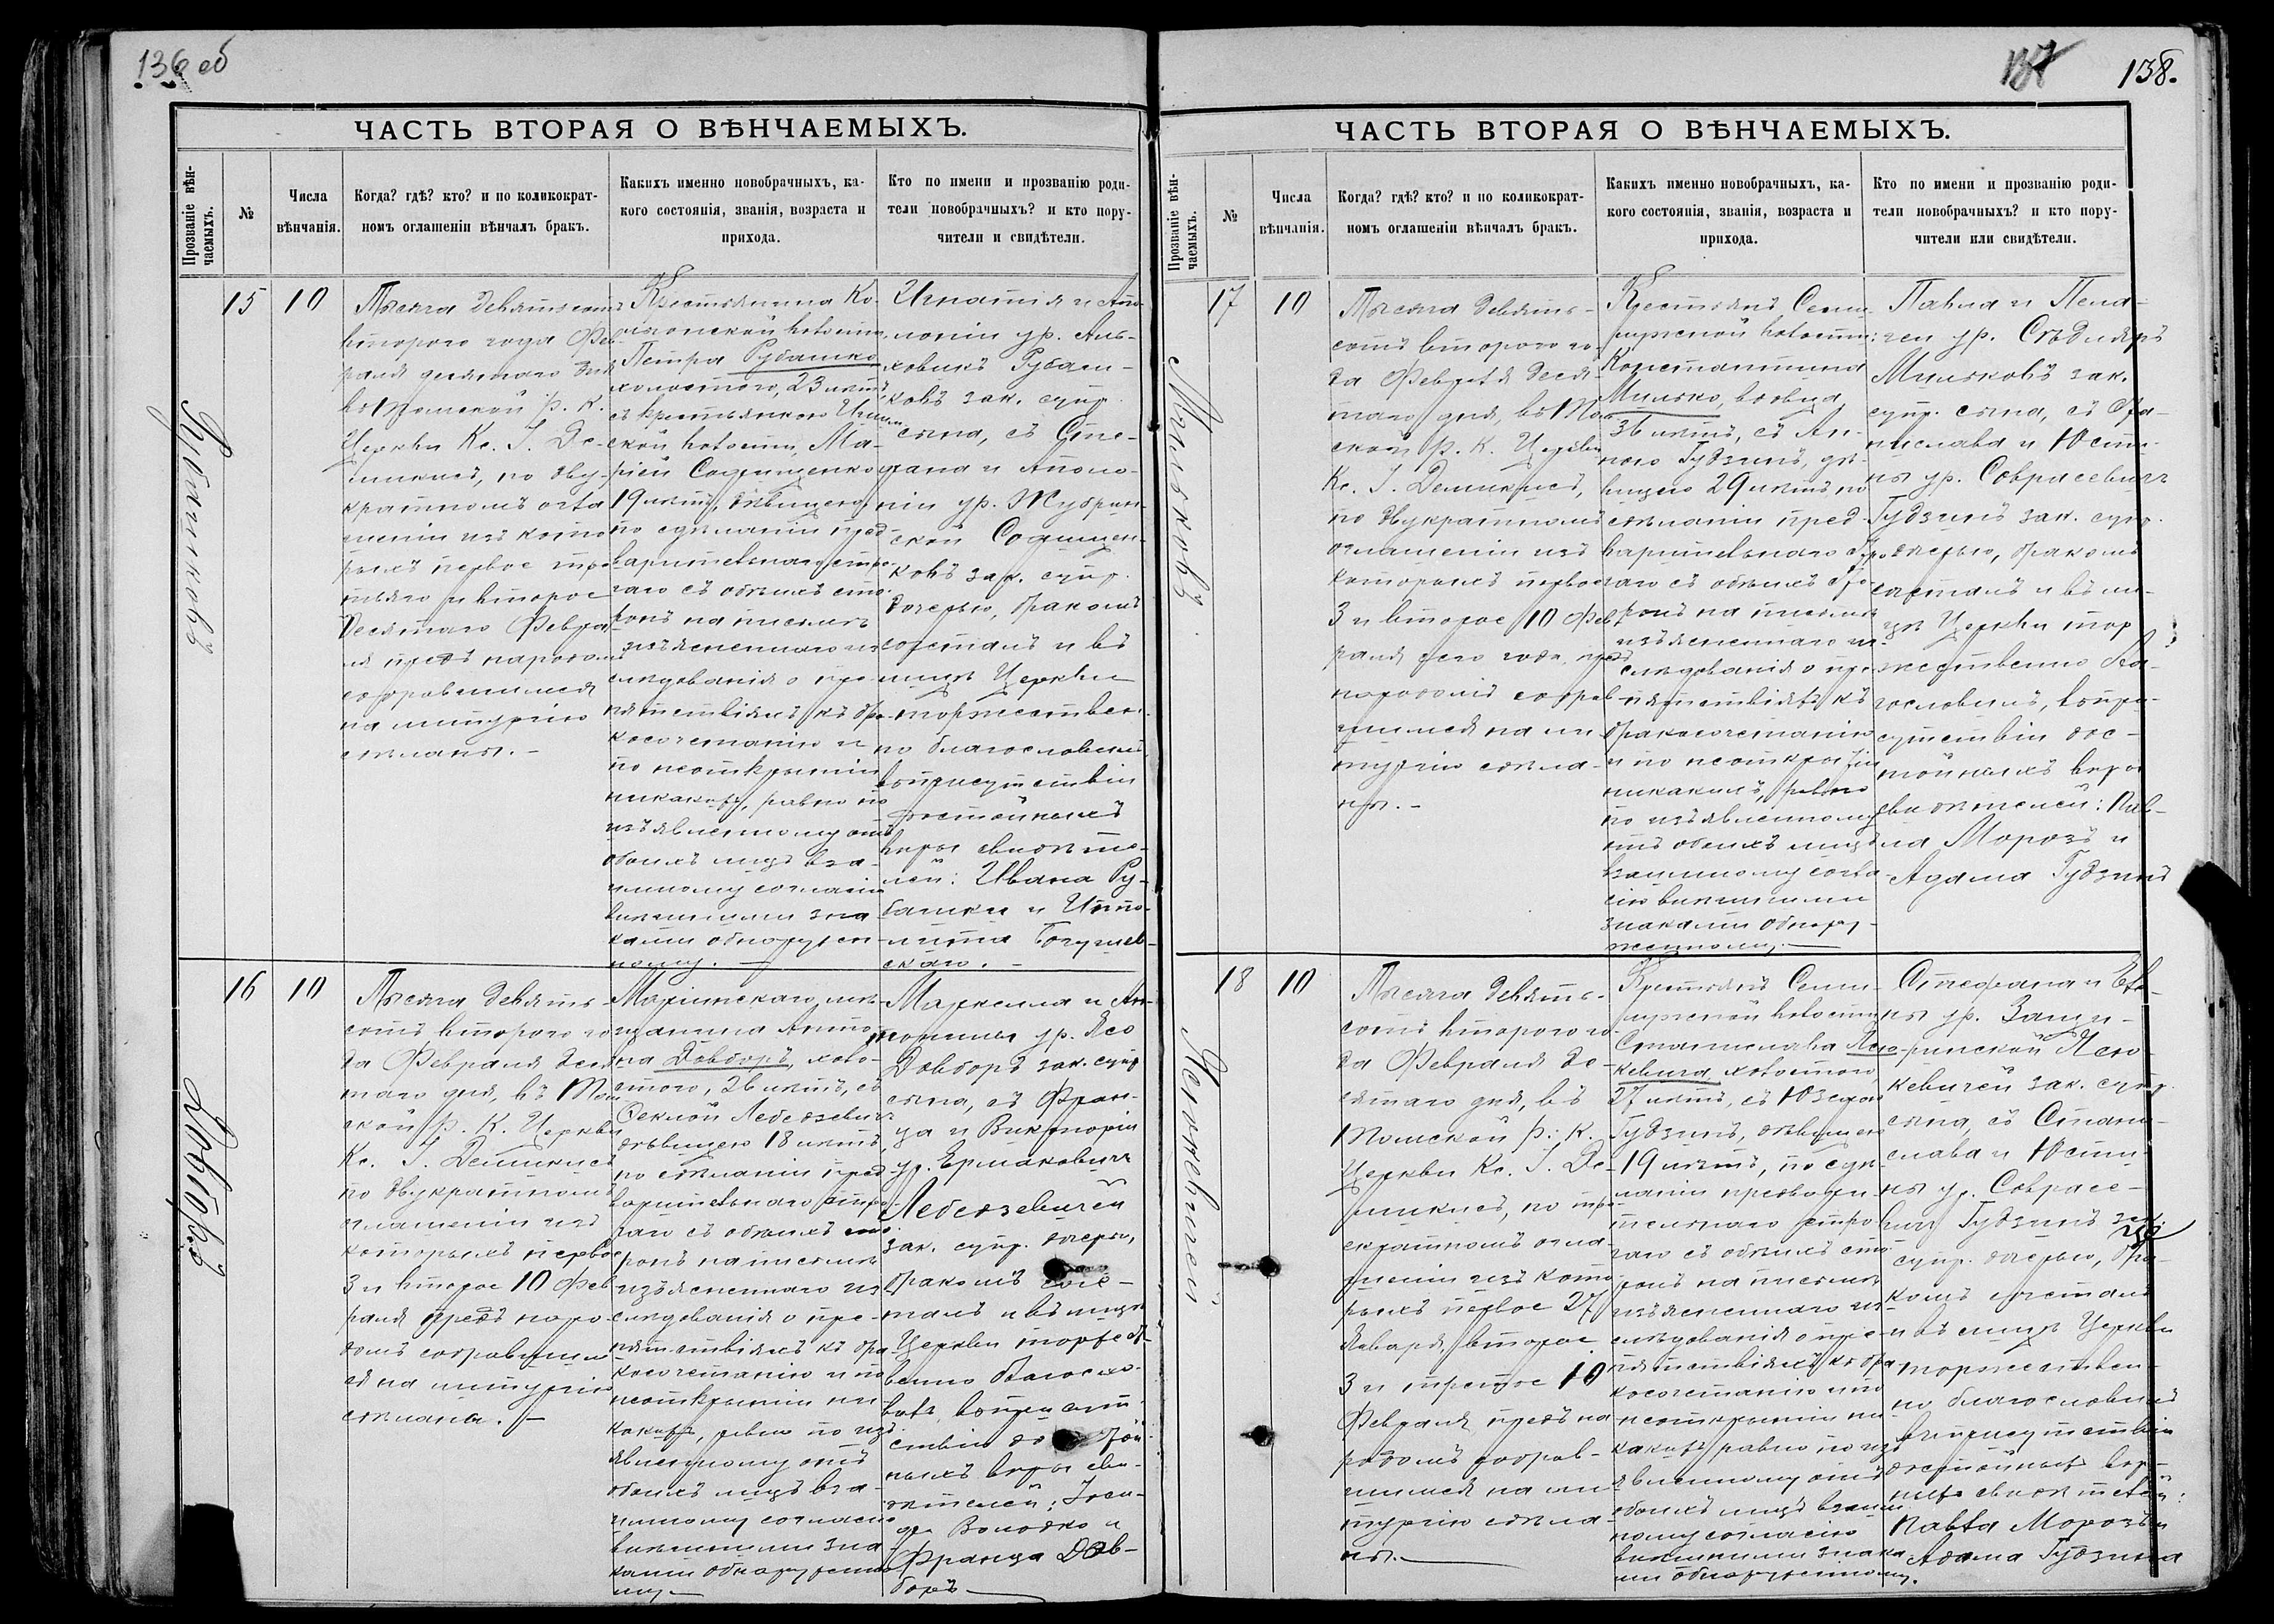 136 об
ЧАСТЬ ВТОРАЯ О ВѢНЧАЕМЫХЪ.
Прозваніе вѣн-
чаемыхъ.
№
Числа
вѣнчанія.
Когда? гдѣ? кто? и по коликократ-
номъ оглашеніи вѣнчалъ бракъ.
Какихъ именно новобрачныхъ, ка-
кого состоянія, званія, возраста и
прихода.
Кто по имени и прозванію роди-
тели новобрачныхъ? и кто пору-
чители и свидѣтели.
Рубашковъ
15
10
Тысяча девятьсотъ
второго года Фев-
раля десятаго дня
въ Томской Р. К.
Церкви Кс. І. Де-
микисъ, по дву-
кратномъ огла
шеніи изъ кото
рыхъ первое тре
тьяго и второе
десятаго Февра
ля предъ народомъ
собравшимся
на литургію
сдѣланы. –
Крестьянина
волости
Петра Рубашко
холостого, 23 лѣтъ,
съ крестьянкою
ской волости, Ма-
ріей
19 лѣтъ, дѣвицею,
по сдѣланіи пред
варительнаго стро
гаго съ обѣихъ сто
ронъ на письмѣ
изъясненнаго из
слѣдованія о пре
пятствіяхъ къ бра
косочетанію и
по неоткрытіи
никакихъ, равно по
изъявленному отъ
обоихъ лицъ вза-
имному согласію
внѣшними зна
ками обнаружен
ному. –
Игнатія и Апо-
лоніи ур. Аль-
ховикъ Рубаш-
ковъ зак. супр.
сына, съ Сте-
фана и Аполо-
ніи ур.
ской
ковъ зак. супр.
дочерью, бракомъ
сочеталъ и въ
лицѣ Церкви
торжествен
но благословилъ,
въ присутствіи
достойныхъ
вѣры свидѣте-
лей: Ивана Ру-
башки и Иппо-
лита Богушев-
скаго. –
Довборъ
16
10
Тысяча девять-
сотъ второго го
да Февраля деся
таго дня, въ Том
ской Р. К. Церкви
Кс. І. Демикисъ
по двукратномъ
оглашеніи изъ
которыхъ первое
3 и второе 10 Фев
раля предъ наро
домъ собравшим
ся на литургію
сдѣланы. –
Маріинскаго мѣ-
щанина Анто-
на Довборъ, холо-
стого, 26 лѣтъ, съ
Феклой Лебедзевичъ
дѣвицею 18 лѣтъ,
по сдѣланіи пред
варительнаго стро
гаго съ обѣихъ сто
ронъ на письмѣ
изъясненнаго из
слѣдованія о пре-
пятствіяхъ къ бра
косочетанію и по
неоткрытіи ни-
какихъ, равно по изъ
явленному отъ
обоихъ лицъ вза-
имному согласію
внѣшними зна
ками обнаруженно
му. –
ур.
Довборъ зак. супр
сына, съ Фран-
ца и Викторіи
ур. Ермаковичъ
Лебедзевичей
зак. супр. дочерью,
бракомъ соче-
талъ и въ лицѣ
Церкви торжест-
венно благосло-
вилъ, въ присут
ствіи достой-
ныхъ вѣры сви-
дѣтелей: Іоси-
фа Володко и
Франца Дов-
боръ –
137
138.
ЧАСТЬ ВТОРАЯ О ВѢНЧАЕМЫХЪ.
Прозваніе вѣн-
чаемыхъ.
№
Числа
вѣнчанія.
Когда? гдѣ? кто? и по коликократ-
номъ оглашеніи вѣнчалъ бракъ.
Какихъ именно новобрачныхъ, ка-
кого состоянія, званія, возраста и
прихода.
Кто по имени и прозванію роди-
тели новобрачныхъ? и кто пору-
чители или свидѣтели.
Мильковъ
17
10
Тысяча девять-
сотъ второго го-
да Февраля деся-
таго дня, въ Том
ской Р. К. Церкви
Кс. І. Демикисъ,
по двукратномъ
оглашеніи изъ
которыхъ первое
3 и второе 10 Фев
раля сего года, предъ
народомъ собрав
шимся на ли
тургію сдѣла-
ны. –
Крестьянъ Семи
лужской волости:
Константина
Милько, вдовца,
36 лѣтъ, съ Ан-
ною Гудзинъ, дѣ-
вицею 29 лѣтъ по
сдѣланіи пред-
варительнаго стро
гаго съ обѣихъ сто
ронъ на письмѣ
изъясненнаго из-
слѣдованія о пре-
пятствіяхъ къ
бракосочетанію
и по неоткрытіи
никакихъ, равно
по изъявленному
отъ обоихъ лицъ
взаимному согла
сію внѣшними
знаками обнару-
женному. –
Павла и Пела-
геи ур. Сѣдляръ
Мильковъ зак.
супр. сына, съ Ста-
нислава и Юсти-
ны ур. Совра­севичъ
Гудзинъ зак. супр.
дочерью, бракомъ
сочеталъ и въ ли-
цѣ Церкви тор
жественно бла-
гословилъ, въ при-
сутствіи дос-
тойныхъ вѣры
свидѣтелей: Пав-
ла Морозъ и
Адама Гудзинъ
18
10
Тысяча девять-
сотъ второго го-
да Февраля де-
сятаго дня, въ
Томской Р. К.
Церкви Кс. І. Де-
микисъ, по тре
хкратномъ огла-
шеніи изъ кото
рыхъ первое 27
Января, второе
3 и третье 10
Февраля предъ на
родомъ собрав-
шимся на ли
тургію сдѣла
ны. –
Крестьянъ Семи-
лужской волости
Станислава
кевича холостого,
27 лѣтъ, съ
Гудзинъ, дѣвицею
19 лѣтъ, по сдѣ-
ланіи предвари-
тельнаго стро
гаго съ обѣихъ сто
ронъ на письмѣ
изъясненнаго из
слѣдованія о пре-
пятствіяхъ къ бра
косочетанію и по
неоткрытіи ни
какихъ, равно по изъ
явленному отъ
обоихъ лицъ взаим
ному согласію
внѣшними знака
ми обнаруженному.
Стефана и Ев-
ны ур.
кевичей зак. супр.
сына, съ Стани-
слава и Юсти-
ны ур. Соврасе-
вичъ Гудзинъ зак.
супр. дочерью, бра-
комъ сочеталъ
и въ лицѣ Церкви
торжествен-
но благословилъ
въ присутствіи
достойныхъ вѣ-
ры свидѣтелей:
Павла Морозъ и
Адама Гудзина